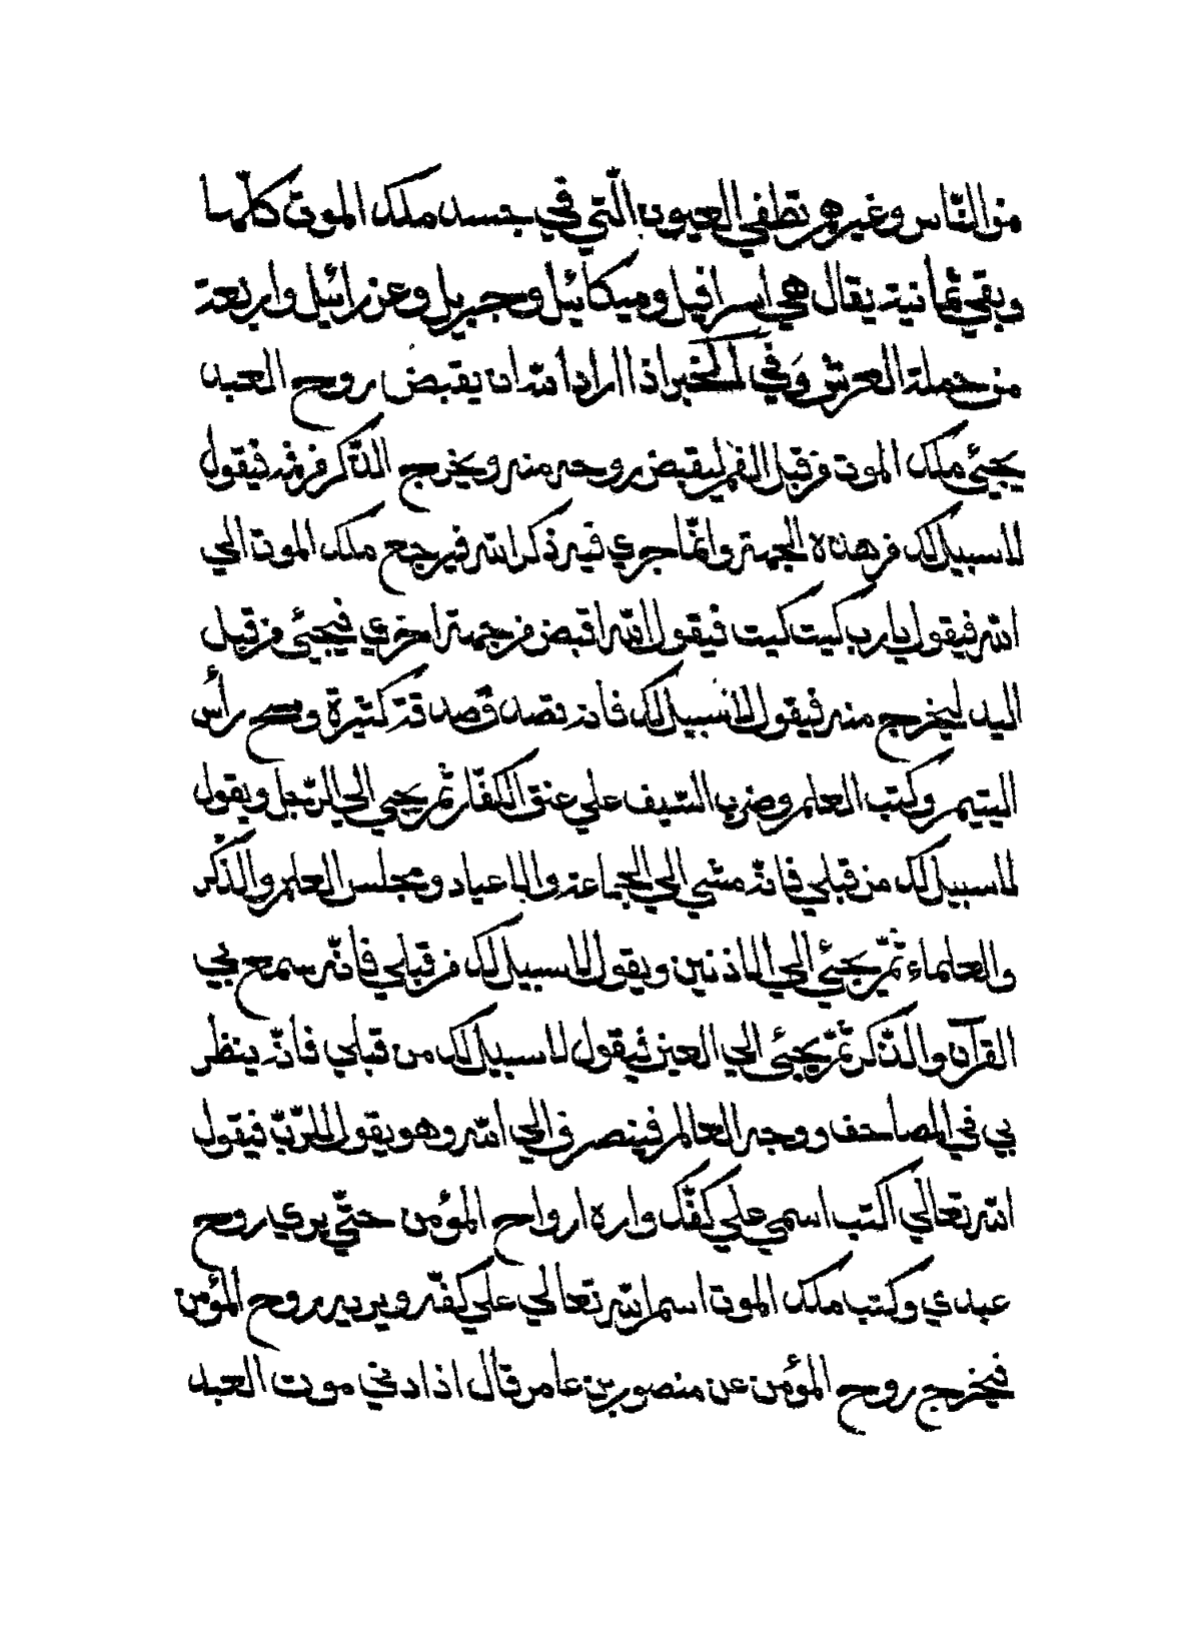 من النّاس وغيرهم تطفي العيون الّتي في جسد ملك الموت كلّها
وبقي ثمانية يقال هي اسرافيل وميكائيل وجبريل وعزرائيل واربعة
من حملة العرش وفي الخبر اذا اراد الله ان يقبض روح العبد
يجيئ ملك الموت من قبل الفم ليقبض روحه منه ويخرج الذّكر من فمه فيقول
لا سبيل لك من هذه الجهة وانّما جري فيه ذكر الله فيرجع ملك الموت الي
الله فيقول يا رب كيت كيت فيقول الله اقبض من جهة اخري فيجيئ من قبل
اليد ليخرج منه فيقول لا سبيل لك فانه تصدق صدقة كثيرة ومسح رأس
اليتيم وكتب العلم وضرب السّيف علي عنق الكفّار ثم يجيي الي الرّجل ويقول
لا سبيل لك من قبلي فانّه مشي الي الجماعة والاعياد ومجلس العلم والذّكر
والعلماء ثمّ يجيئ الي الاذنين ويقول لا سبيل لك من قبلي فانّه سمع بي
القرآن والذّكر ثمّ يجيئ الي العين فيقول لا سبيل لك من قبلي فانّه ينظر
بي في المصاحف ووجه العالم فينصرف الي الله وهو يقول للرّبّ فيقول
الله تعالي اكتب اسمي علي كفّك واره ارواح المؤمن حتّي يري روح
عبدي وكتب ملك الموت اسم الله تعالي علي كفّه ويريه روح المؤمن
فيخرج روح المؤمن عن منصور بن عامر قال اذا دني موت العبد